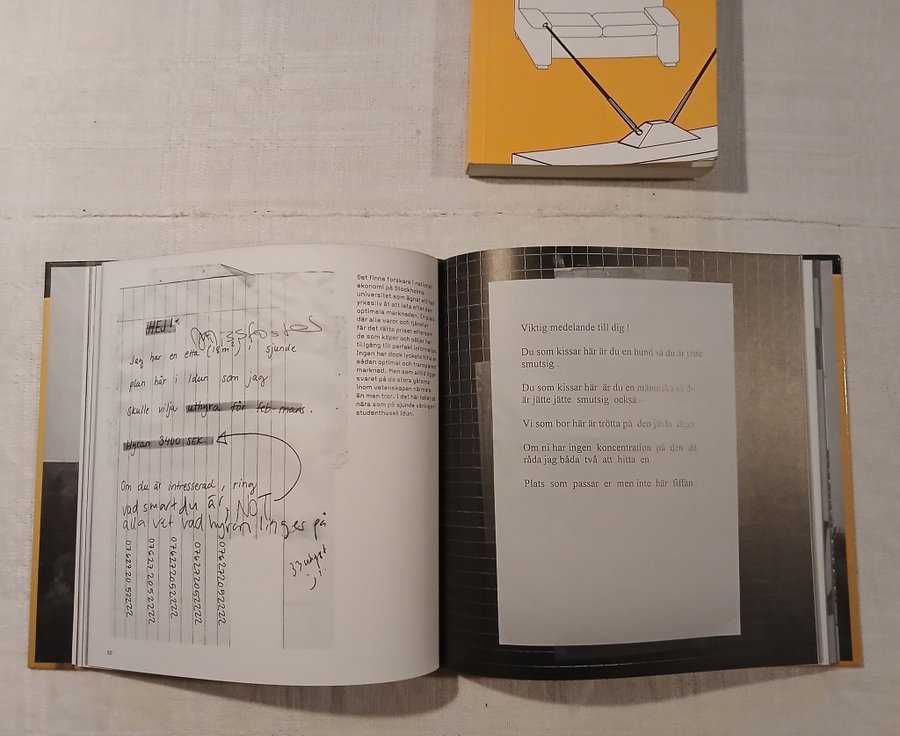 HEJ!
Jag har en etta (18m²) i sjunde
plan här i Idun som jag
skulle vilja uthyra för feb-mars.
Hyran 3400 SEK.
Om du är intresserad, ring
vad smart du är, NOT
alla vet vad hyran ligger på
33 utrypt
0762720 52222
0762720 52222
0762720 52222
0762720 52222
0762720 52222
50
Det finns forskare i national-
ekonomi på Stockholms
universitet som ägnar ett helt
yrkesliv åt att leta efter den
optimala marknaden. En plats
där alla varor och tjänster
får det rätta priset eftersom
de som köper och säljer har
tillgång till perfekt information.
Ingen har dock lyckats hitta en
sådan optimal och transparent
marknad. Men som alltid ligger
svaret på de stora gåtorna
inom vetenskapen närmare
än man tror. I det här fallet så
nära som på sjunde våningen i
studenthuset Idun.
Viktig medelande till dig !
Du som kissar här är du en hund så du är jätte
smutsig .
Du som kissar här är du en människa så du
är jätte jätte smutsig också
Vi som bor här är trötta på den jävla läget
Om ni har ingen koncentration på den då
råda jag båda två att hitta en
Plats som passar er men inte här fiffan .